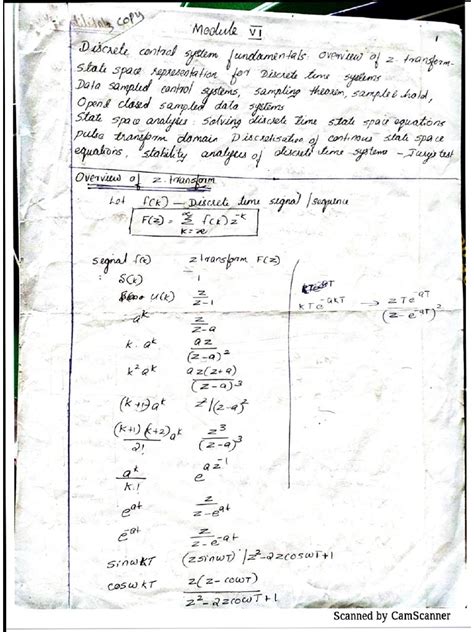 copy
Module VI
1
Discrete control system fundamentals overview of z transform.
State space representation for Discrete time systems
Data sampled control systems, sampling theorem, sample & hold,
Open & closed sampled data systems
State space analysis: Solving discrete time state space equations
pulse transform domain Discretisation of continous state space
equations, stability analysis of discrete time systems - Jury's test
Overview of z-transform
Let f(k) — Discrete time signal / sequence
F(z) = Σ f(k) z^-k
signal f(k) z transform F(z)
δ(k) 1
u(k) z/(z-1)
kTe^-akT → zTe^-aT/(z-e^-aT)^2
a^k z/(z-a)
k·a^k az/(z-a)^2
k^2 a^k az(z+a)/(z-a)^3
(k+1)a^k z^2/(z-a)^2
(k+1)(k+2)a^k/2! z^3/(z-a)^3
a^k/k! e^az^-1
e^at z/(z-e^at)
e^-at z/(z-e^-at)
sinωkT (z sinωT)/z^2-2zcosωT+1
cosωkT z(z-cosωT)/z^2-2zcosωT+1
Scanned by CamScanner